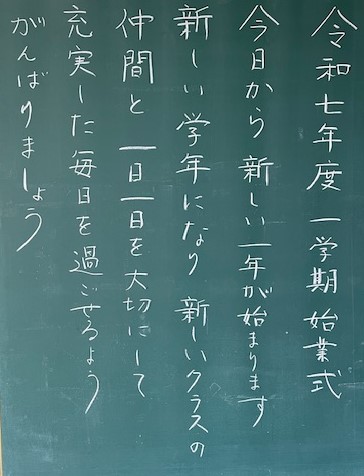 令和七年度 一学期始業式
今日から 新しい一年が始まります
新しい学年になり 新しいクラスの
仲間と 一日一日を大切にして
充実した毎日を過ごせるよう
がんばりましょう